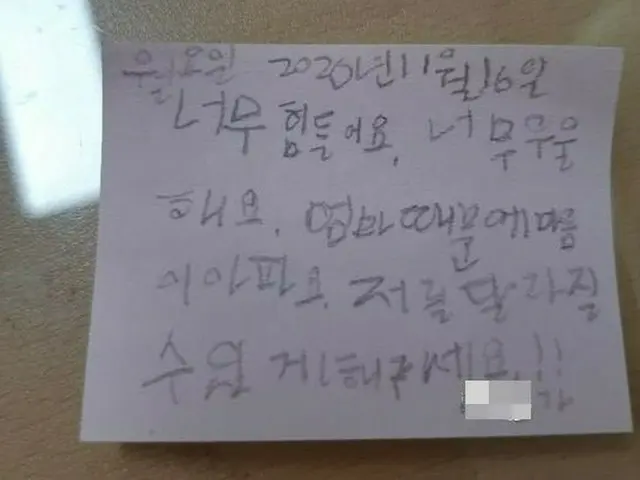 월요일 2020년11월16일
너무 힘들어요. 너무 우울
해요. 엄마 때문에 마음
이 아파요. 저를 달라질
수 있게 해주세요.!!
가